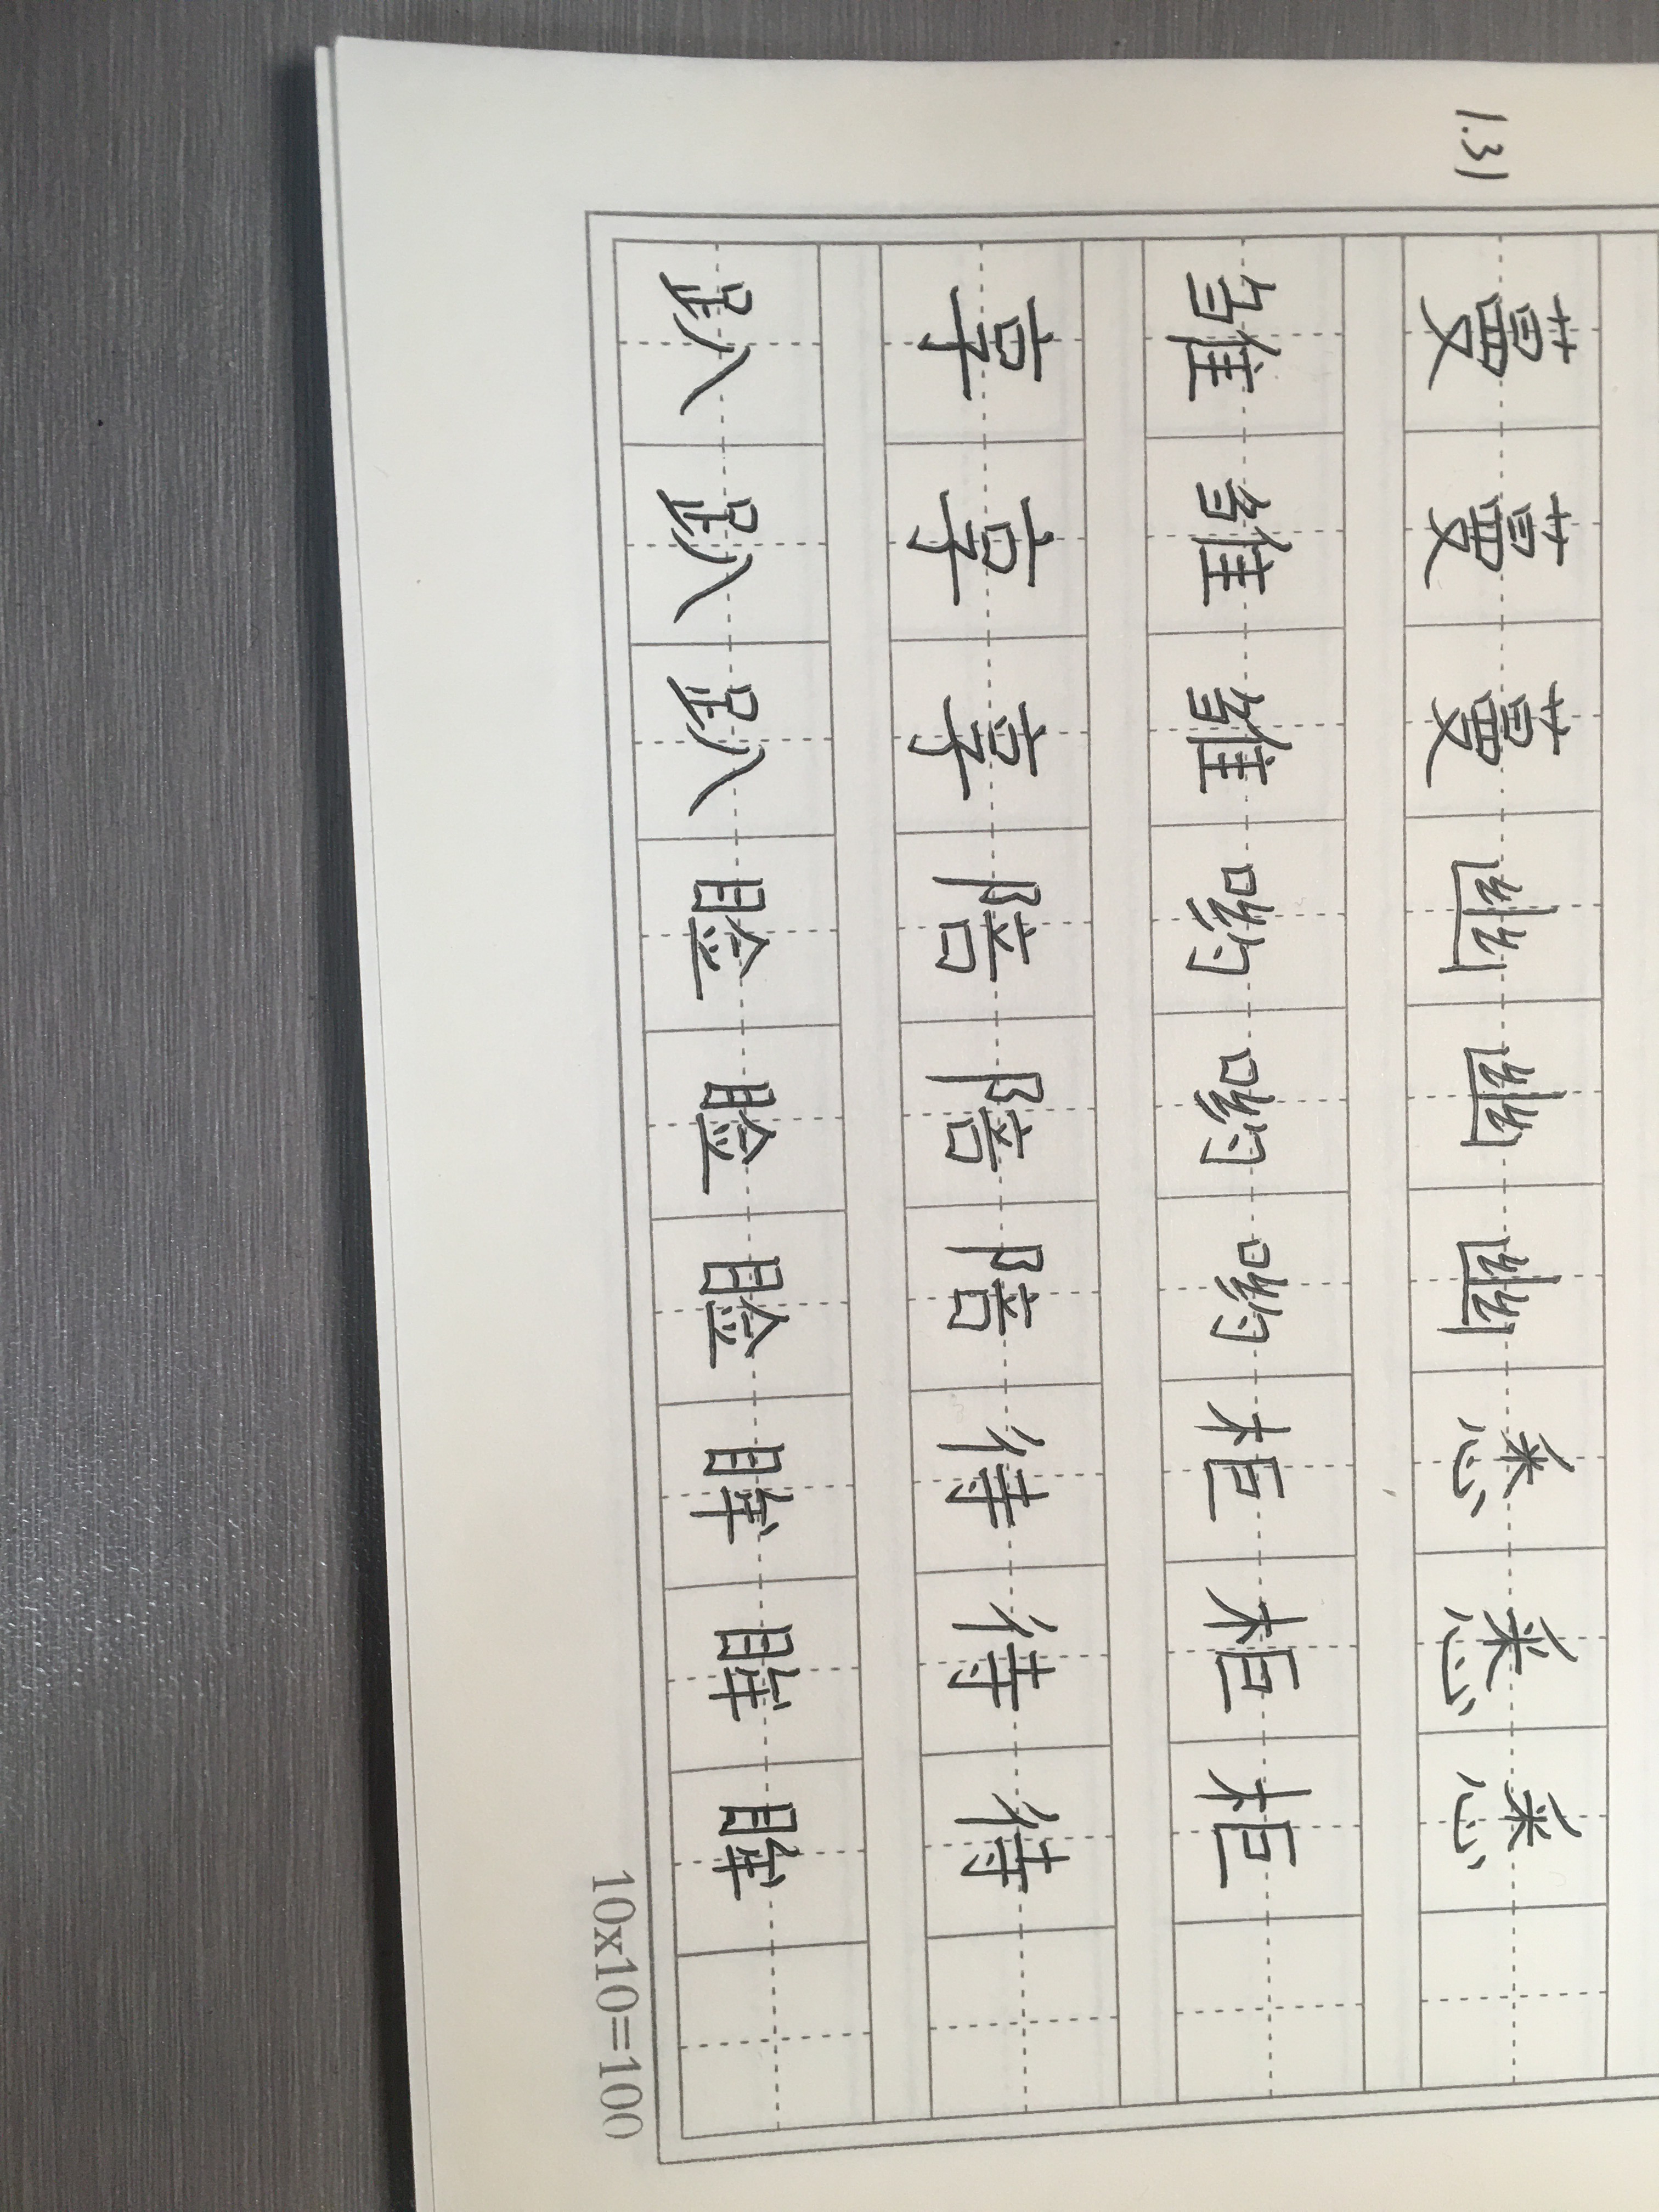 1.31
蔓蔓蔓幽幽幽悉悉悉
雏雏雏哟哟哟柜柜柜
享享享陪陪陪待待待
趴趴趴睑睑睑眸眸眸
10x10=100